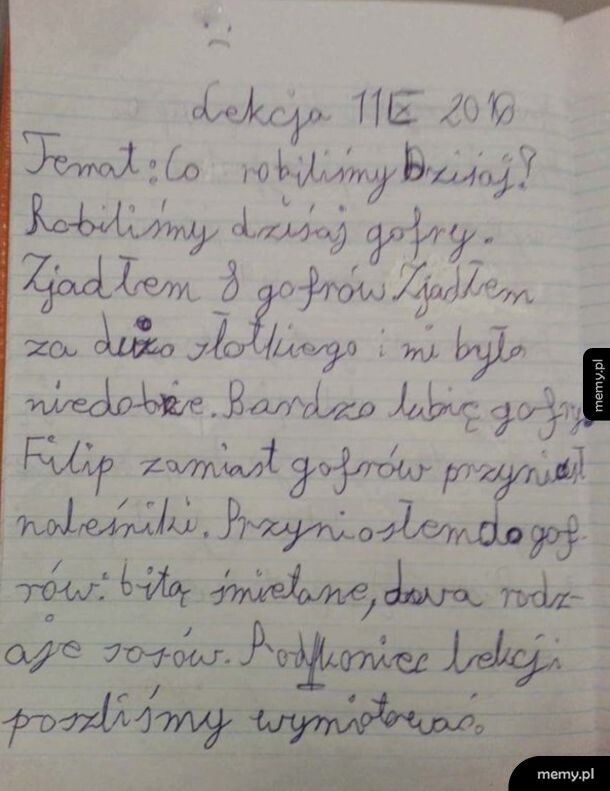 Lekcja 11 IX 2018
Temat: Co robiliśmy Dzisiaj?
Robiliśmy dziśaj gofry.
Zjadłem 8 gofrów Zjadłem
za dużo słotkiego i mi było
niedobrze. Bardzo lubię gofry.
Filip zamiast gofrów przyniusł
naleśniki. Przyniosłem do gof-
rów: bitą śmietane, dwa rodz-
aje sosów. Pod koniec lekcji
poszliśmy wymiotować.
memy.pl
memy.pl